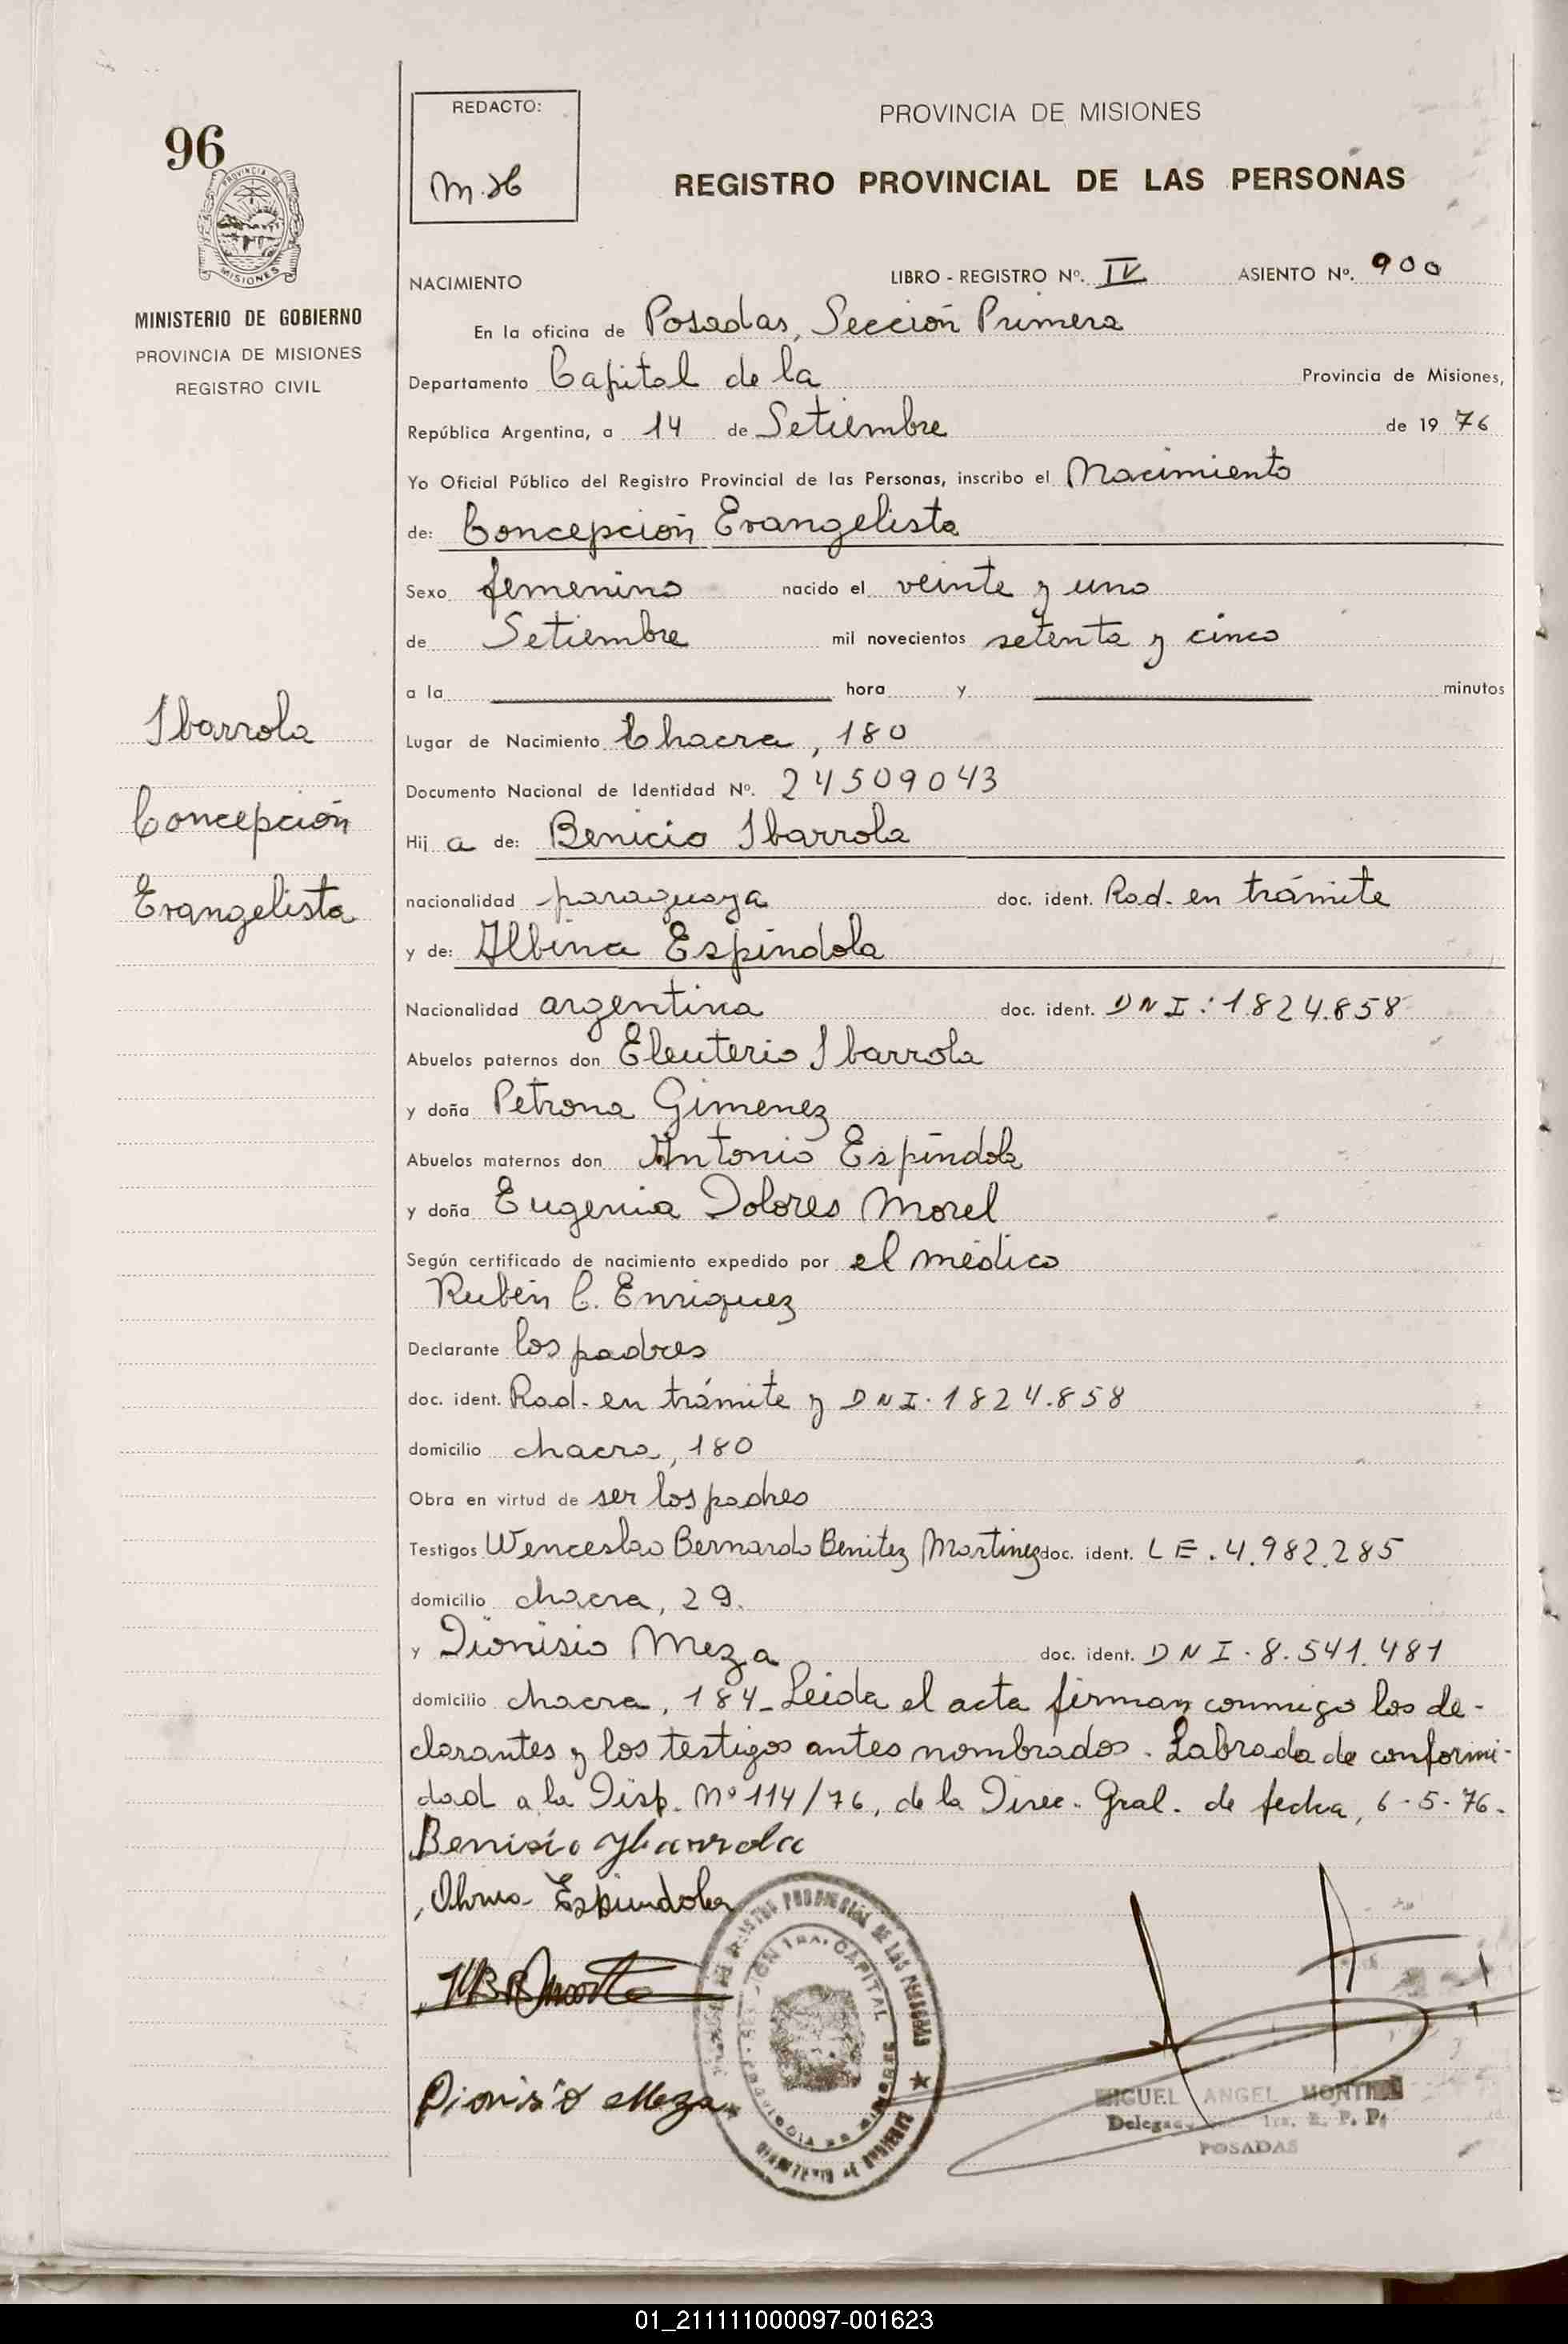 96
PROVINCIA DE
MISIONES
MINISTERIO DE GOBIERNO
PROVINCIA DE MISIONES
REGISTRO CIVIL
REDACTO:
M.H
PROVINCIA DE MISIONES
REGISTRO PROVINCIAL DE LAS PERSONAS
NACIMIENTO LIBRO - REGISTRO Nº. IV ASIENTO Nº. 900
En la oficina de Posadas, Sección Primera
Departamento Capital de la Provincia de Misiones,
República Argentina, a 14 de Setiembre de 19 76
Yo Oficial Público del Registro Provincial de las Personas, inscribo el Nacimiento
de: Concepción Evangelista
Sexo femenino nacido el veinte y uno
de Setiembre mil novecientos setenta y cinco
a la hora y minutos
Lugar de Nacimiento Chacra, 180
Documento Nacional de Identidad Nº. 24509043
Hij a de: Benicio Ibarrola
nacionalidad paraguaya doc. ident. Rad. en trámite
y de: Albina Espíndola
Nacionalidad argentina doc. ident. DNI: 1.824.858
Abuelos paternos don Eleuterio Ibarrola
y doña Petrona Gimenez
Abuelos maternos don Antonio Espíndola
y doña Eugenia Dolores Morel
Según certificado de nacimiento expedido por el médico
Rubén C. Enriquez
Declarante los padres
doc. ident. Rad. en trámite y DNI. 1824.858
domicilio chacra, 180
Obra en virtud de ser los padres
Testigos Wenceslao Bernardo Benitez Martinez doc. ident. LE. 4.982.285
domicilio chacra, 29.
y Dionisio Meza doc. ident. DNI. 8.541.481
domicilio chacra, 184_ Leida el acta firman conmigo los de-
clarantes y los testigos antes nombrados. Labrada de conformi-
dad a la Disp. Nº 114/76, de la Direc. Gral. de fecha, 6-5-76.
Ibarrola
Concepción
Evangelista
Benisio Ybarrola
Espindola
Dionisio Meza
REGISTRO PROVINCIAL DE LAS PERSONAS
SECCION 1RA. CAPITAL
MIGUEL ANGEL
1ra. R. P. P.
POSADAS
01_211111000097-001623